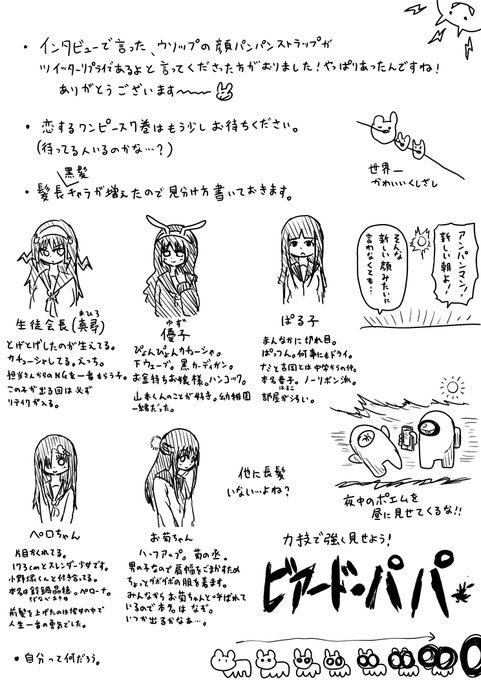 ・インタビューで言った、ウソップの顔パンパンストラップが
ツイッターリプライであるよと言ってくださった方がおりました！やっぱりあったんですね！
ありがとうございます〜〜〜
・恋するワンピース7巻はもう少しお待ちください。
(待ってる人いるのかな…？)
黒髪
・髪長キャラが増えたので見分け方書いておきます。
世界一
かわいいくしざし
アンパンマン！
新しい朝よ！
そんな
新しい顔みたいに
言わなくても…
生徒会長(真尋)
まひろ
とげとげしたのが生えてる。
カチューシャしてる。えっち。
担当さんからのNGを一番もらう子。
この子が出る回は必ず
リテイクが入る。
ゆず
優子
ぴょんぴょんカチューシャ。
下ウェーブ。黒カーディガン。
お金持ちお嬢様。ハンコック。
山本くんのことが好き。幼稚園
一緒だった。
ぱる子
まんなかに切れ目。
ぱっつん。何事にもドライ。
ノーリボン派。
部屋が汚い。
夜中のポエムを
昼に見せてくるな！！
ペロちゃん
片目かくれてる。
173cmとスレンダー少女です。
小野塚くんと付き合ってる。
ペローナ。
前髪を上げたのは彼女の中で
人生一番の勇気でした。
お菊ちゃん
ハーフアップ。菊の丞。
男の子なので肩幅をごまかすため
ちょっとダボダボの服を着ます。
みんなからお菊ちゃんと呼ばれて
いるので本名はなぞ。
いつか出るかなぁ…。
他に長髪
いない…よね？
力技で強く見せよう！
ビアード・パパ
・自分って何だろう。